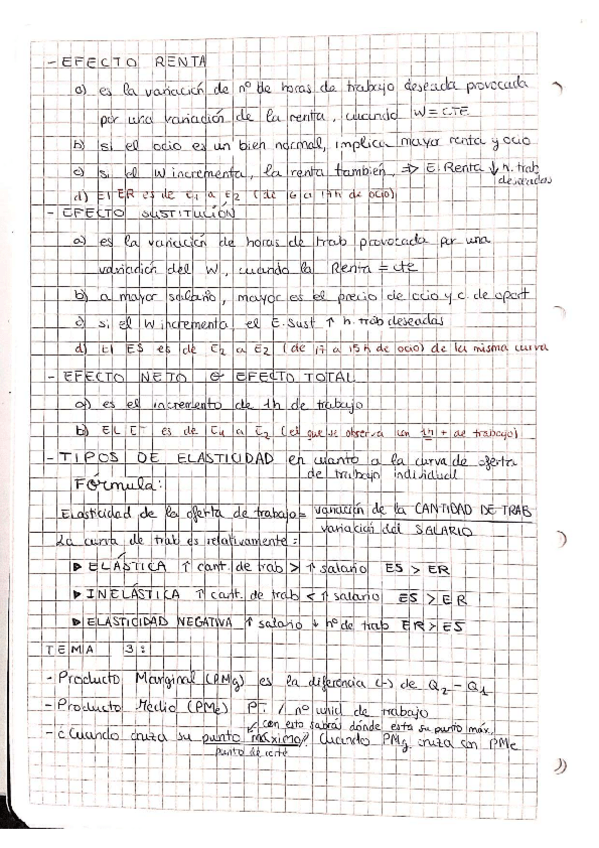 - EFECTO RENTA
a) es la variación de nº de horas de trabajo deseada provocada
por una variación de la renta, cuando W = CTE
b) si el ocio es un bien normal, implica mayor renta y ocio
c) si el W incrementa, la renta tambien, ⇒ E. Renta ↓ h. trab
deseadas
d) El ER es de C1 a E2 (de 16 a 17h de ocio)
- EFECTO SUSTITUCIÓN
a) es la variación de horas de trab provocada por una
variación del W, cuando la Renta = cte
b) a mayor salario, mayor es el precio de ocio y c. de oport
c) si el W incrementa el E. Sust ↑ h. trab deseadas
d) El ES es de C2 a E2 (de 17 a 15h de ocio) de la misma curva
- EFECTO NETO O EFECTO TOTAL
a) es el incremento de 1h de trabajo
b) EL ET es de C1 a C2 (el que se observa un 1h + de trabajo)
- TIPOS DE ELASTICIDAD en cuanto a la curva de oferta
de trabajo individual
Fórmula:
Elasticidad de la oferta de trabajo = variación de la CANTIDAD DE TRAB
variación del SALARIO
La curva de trab es relativamente:
▶ ELÁSTICA ↑ cant. de trab > ↑ salario ES > ER
▶ INELÁSTICA ↑ cant. de trab < ↑ salario ES > ER
▶ ELASTICIDAD NEGATIVA ↑ salario ↓ nº de trab ER > ES
TEMA 3:
- Producto Marginal (PMg) es la diferencia (-) de Q2 - Q1
- Producto Medio (PMe) PT / nº unid de trabajo
con esto sabrás dónde esta su punto máx.
- ¿Cuando cruza su punto máximo? Cuando PMg cruza con PMe
punto de corte